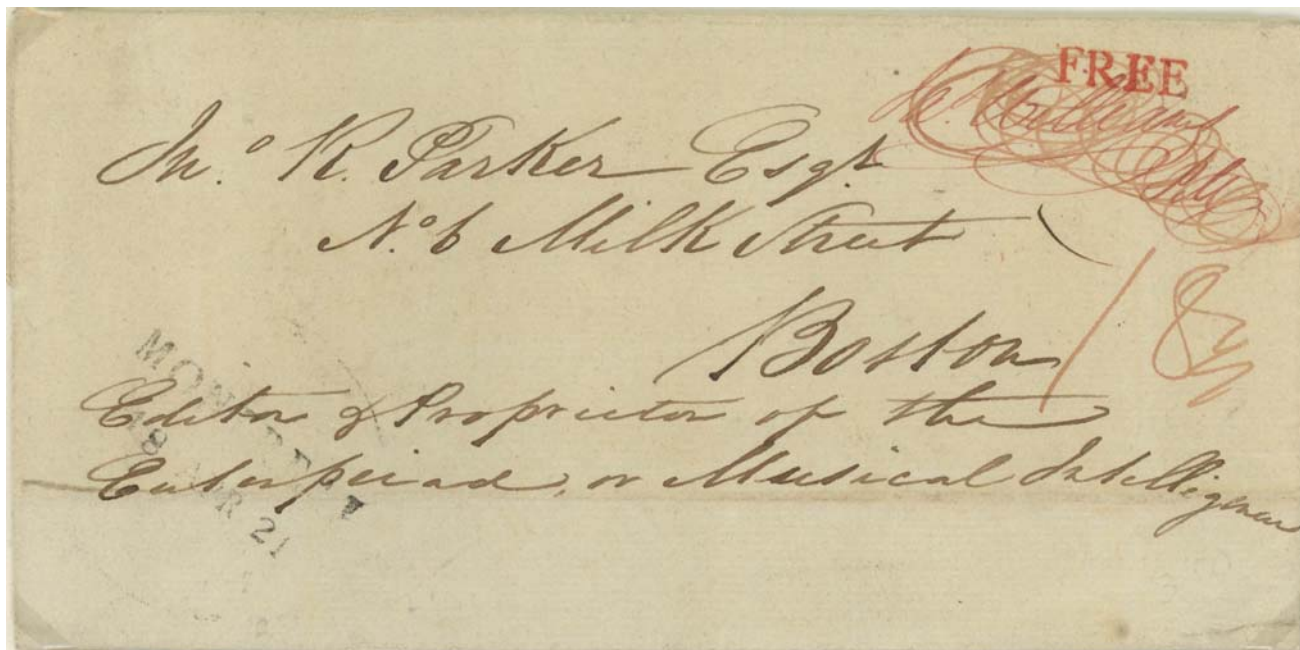 FREE
Jn.º R. Parker Esqr.
Nº 6 Milk Street
Boston
18¾
Editor & Proprietor of the
Euterpeiad, or Musical Intelligencer
21